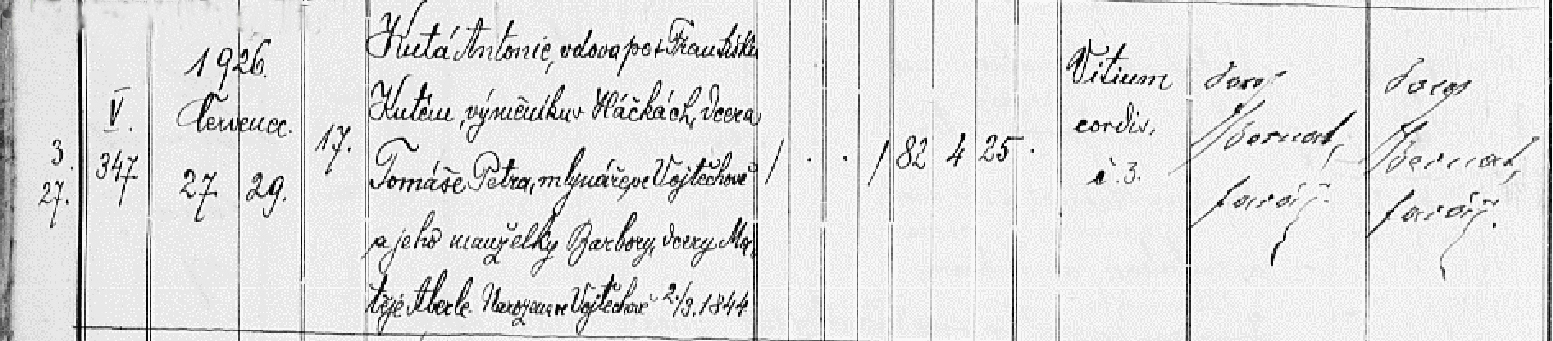 3.
27.
V.
347
1926.
Červenec.
27. 29.
17.
Kutá Antonie, vdova po † Františku
Kutém, výměníku v Háčkách, dcera
Tomáše Petra, mlynáře, ve Vojtěchově
a jeho manželky Barbory, dcery Ma,
těje Aberle. Narozena ve Vojtěchově 2./3. 1844.
/ . . / 82 4 25.
Vitium
cordis,
č. 3.
Josef
Bernat,
farář.
Josef
Bernat,
farář.